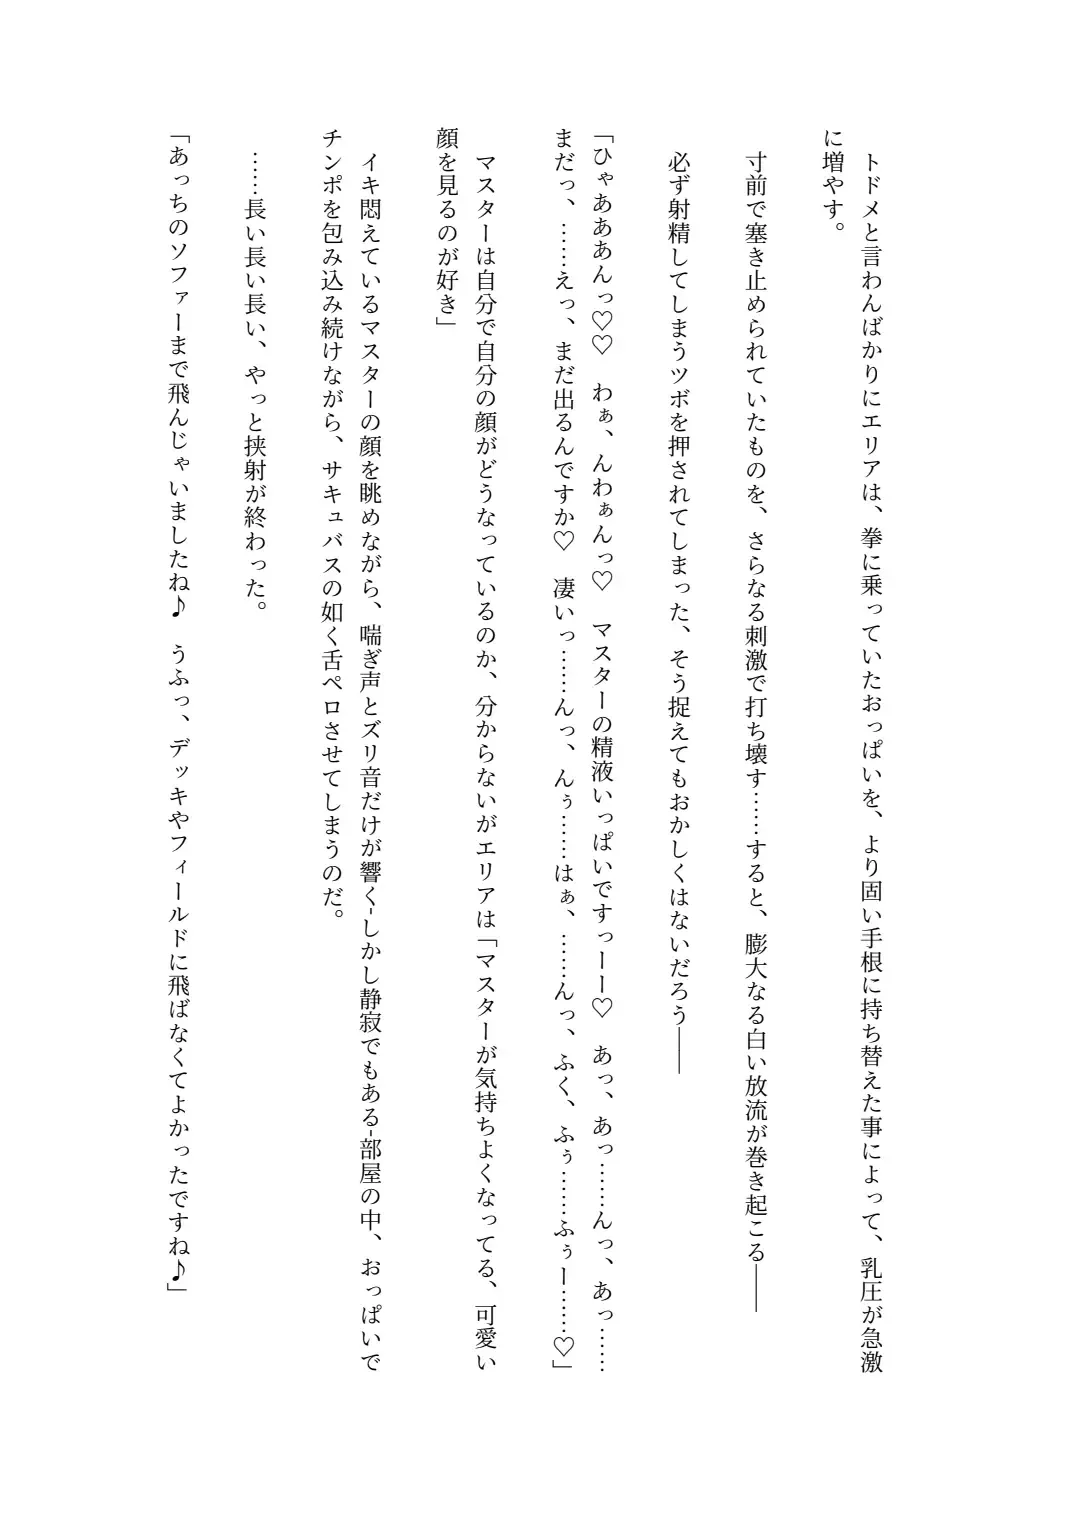 トドメと言わんばかりにエリアは、拳に乗っていたおっぱいを、より固い手根に持ち替えた事によって、乳圧が急激
に増やす。
寸前で塞き止められていたものを、さらなる刺激で打ち壊す……すると、膨大なる白い放流が巻き起こる――
必ず射精してしまうツボを押されてしまった、そう捉えてもおかしくはないだろう――
「ひゃあああんっ♡♡　わぁ、んわぁんっ♡　マスターの精液いっぱいですっーー♡　あっ、あっ……んっ、あっ……
まだっ、……えっ、まだ出るんですか♡　凄いっ……んっ、んぅ……はぁ、……んっ、ふく、ふぅ……ふぅー……♡」
マスターは自分で自分の顔がどうなっているのか、分からないがエリアは「マスターが気持ちよくなってる、可愛い
顔を見るのが好き」
イキ悶えているマスターの顔を眺めながら、喘ぎ声とズリ音だけが響く-しかし静寂でもある-部屋の中、おっぱいで
チンポを包み込み続けながら、サキュバスの如く舌ペロさせてしまうのだ。
……長い長い長い、やっと挟射が終わった。
「あっちのソファーまで飛んじゃいましたね♪　うふっ、デッキやフィールドに飛ばなくてよかったですね♪」